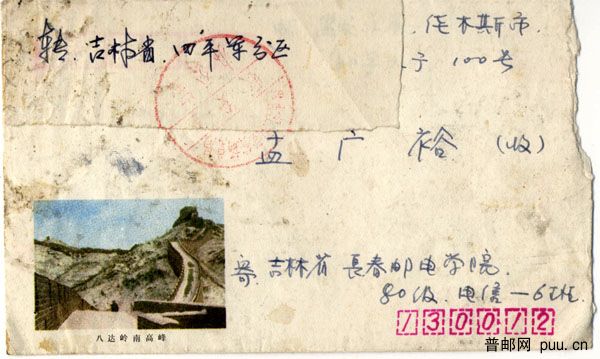 佳木斯市
100号
转.吉林省.四平军分区
孟广裕(收)
寄.吉林省長春邮电学院.
80级.电信一6班
130012
八达岭南高峰
普邮网 puu.cn